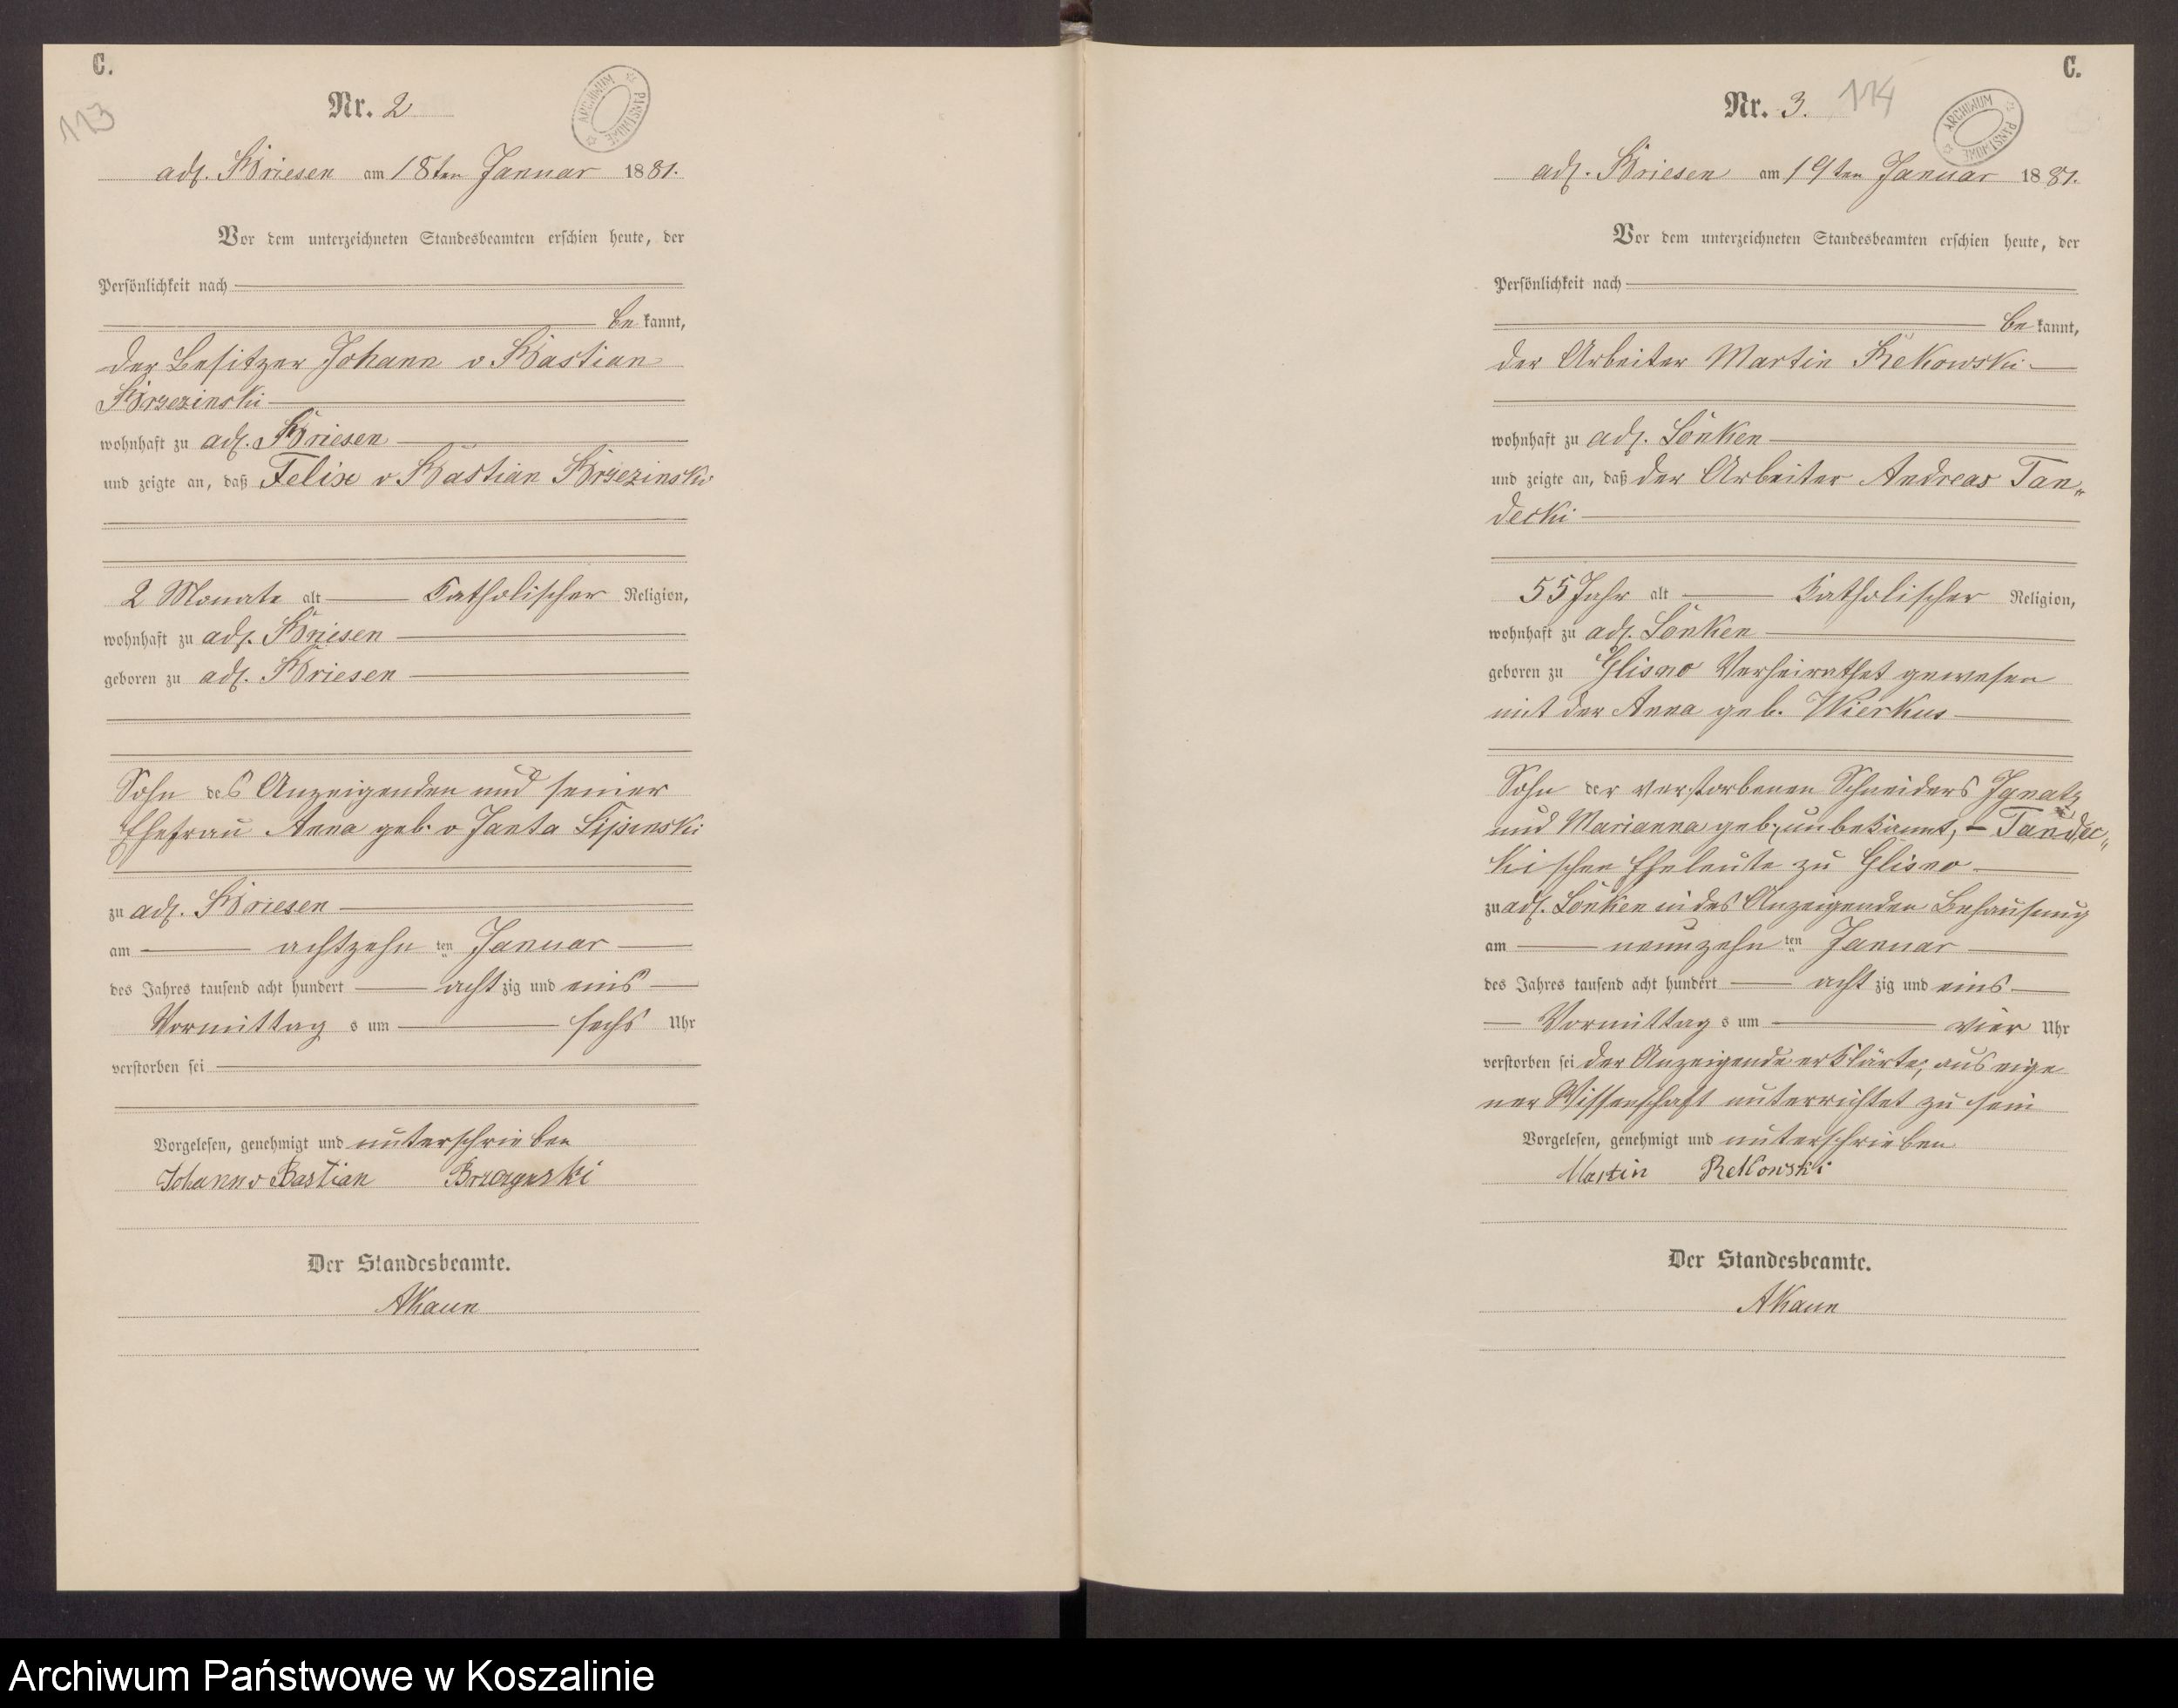 C.
113
Nr. 2
ARCHIWUM PAŃSTWOWE
adl. Briesen am 18ten Januar 1881.
Vor dem unterzeichneten Standesbeamten erschien heute, der
Persönlichkeit nach
be kannt,
der Besitzer Johann v Bastian
Brzezinski
wohnhaft zu adl. Briesen
und zeigte an, daß Felix v Bastian Brzezinski
2 Monate alt katholischer Religion,
wohnhaft zu adl. Briesen
geboren zu adl. Briesen
Sohn des Anzeigenden und seiner
Ehefrau Anna geb. v Janta Lipinski
zu adl. Briesen
am achtzehn ten Januar
des Jahres tausend acht hundert acht zig und eins
Vormittag s um sechs Uhr
verstorben sei
Vorgelesen, genehmigt und unterschrieben
Johann v Bastian
Der Standesbeamte.
AKaun
C.
Nr. 3. 114
ARCHIWUM PAŃSTWOWE
adl. Briesen am 19ten Januar 1881.
Vor dem unterzeichneten Standesbeamten erschien heute, der
Persönlichkeit nach
be kannt,
der Arbeiter Martin Rekowski
wohnhaft zu adl. Lonken
und zeigte an, daß der Arbeiter Andreas Tan„
decki
55 Jahr alt katholischer Religion,
wohnhaft zu adl. Lonken
geboren zu Glisno Verheirathet gewesen
mit der Anna geb. Wierkus
Sohn der verstorbenen Schneiders Ignatz
und Marianna geb. unbekannt, – Tandec„
kischen Eheleute zu Glisno
zu adl. Lonken in des Anzeigenden Behausung
am neunzehn ten Januar
des Jahres tausend acht hundert acht zig und eins
Vormittag s um vier Uhr
verstorben sei der Anzeigende erklärte, aus eige
ner Wissenschaft unterrichtet zu sein
Vorgelesen, genehmigt und unterschrieben
Martin Rekowski
Der Standesbeamte.
AKaun
Archiwum Państwowe w Koszalinie